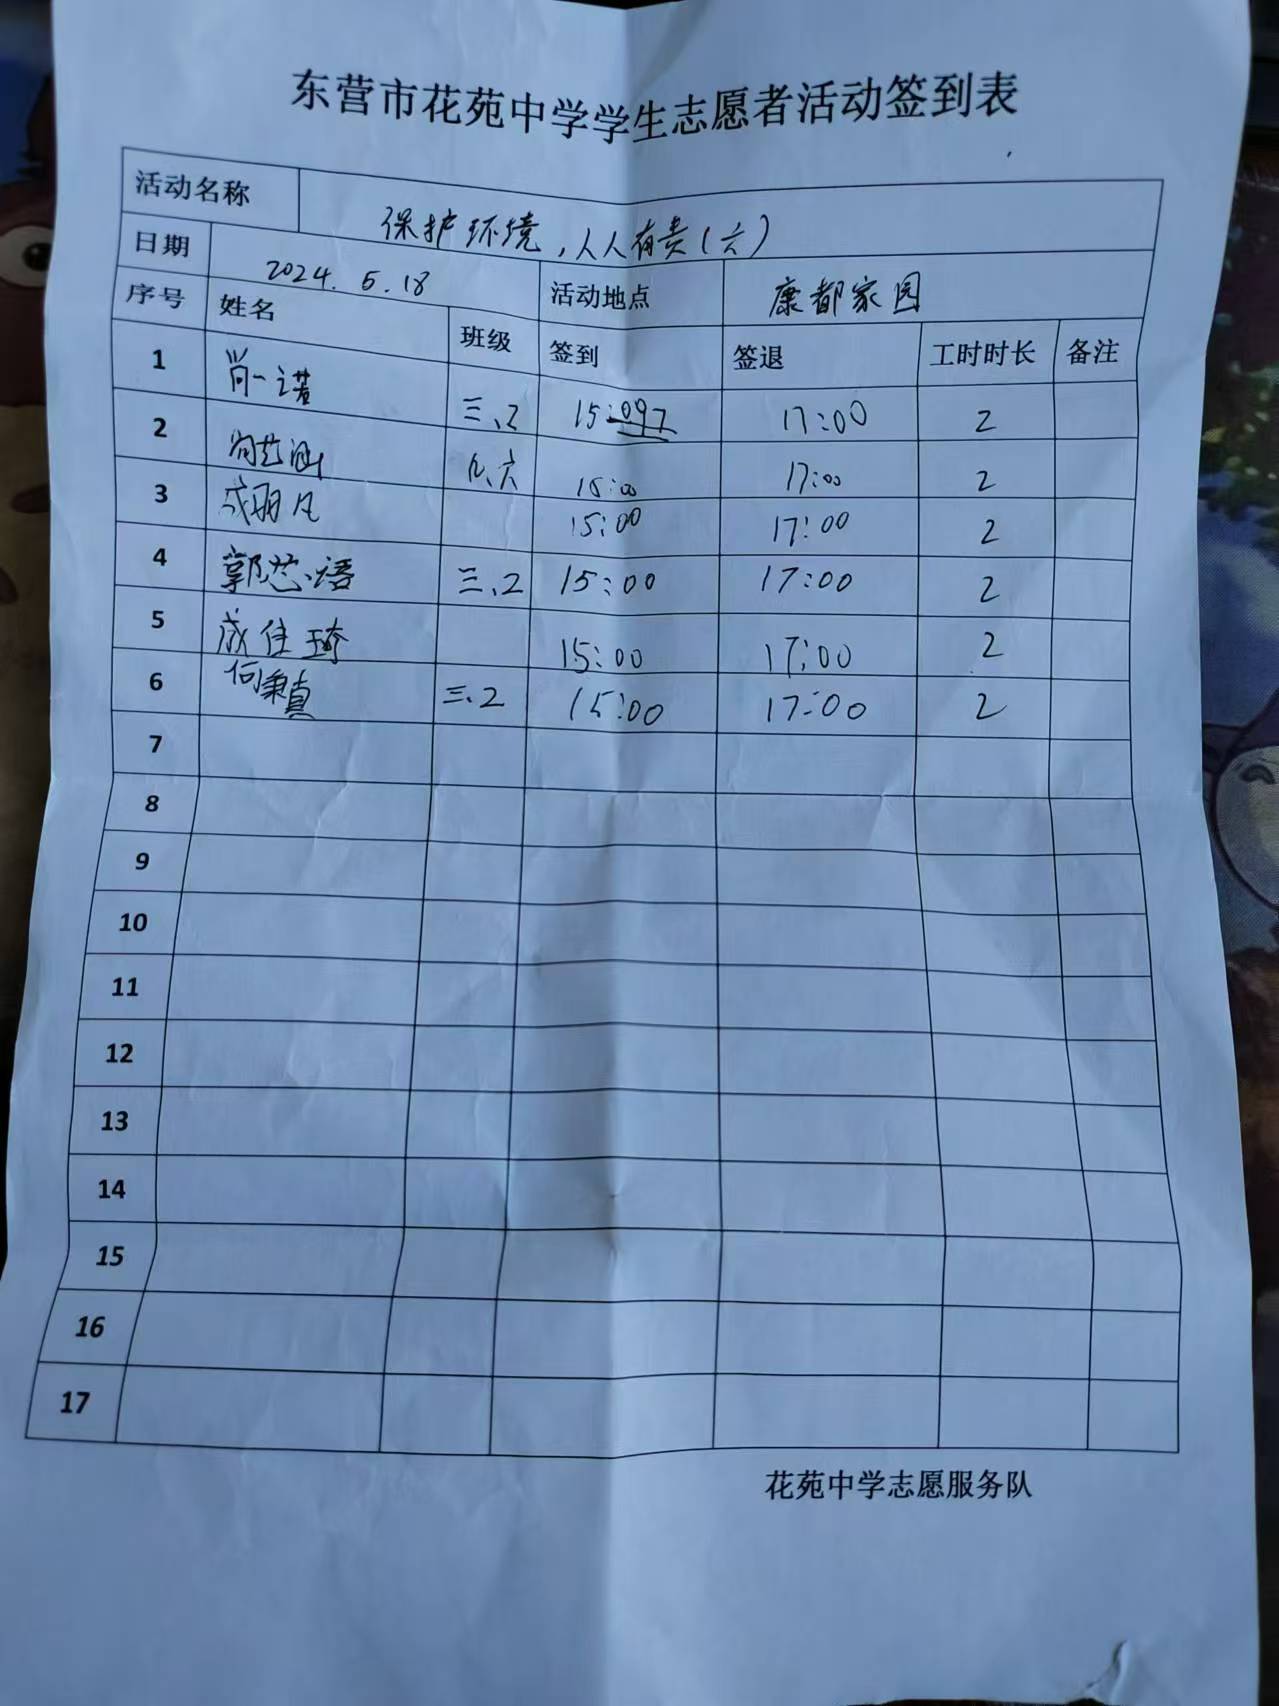 东营市花苑中学学生志愿者活动签到表
活动名称 保护环境,人人有责(六)
日期 2024.5.18 活动地点 康都家园
序号 姓名 班级 签到 签退 工时时长 备注
1 尚一诺 三、2 15: 17:00 2
2 15:00 17:00 2
3 成羽凡 15:00 17:00 2
4 郭芯语 三、2 15:00 17:00 2
5 成佳琦 15:00 17:00 2
6 何秉真 三、2 15:00 17:00 2
7
8
9
10
11
12
13
14
15
16
17
花苑中学志愿服务队